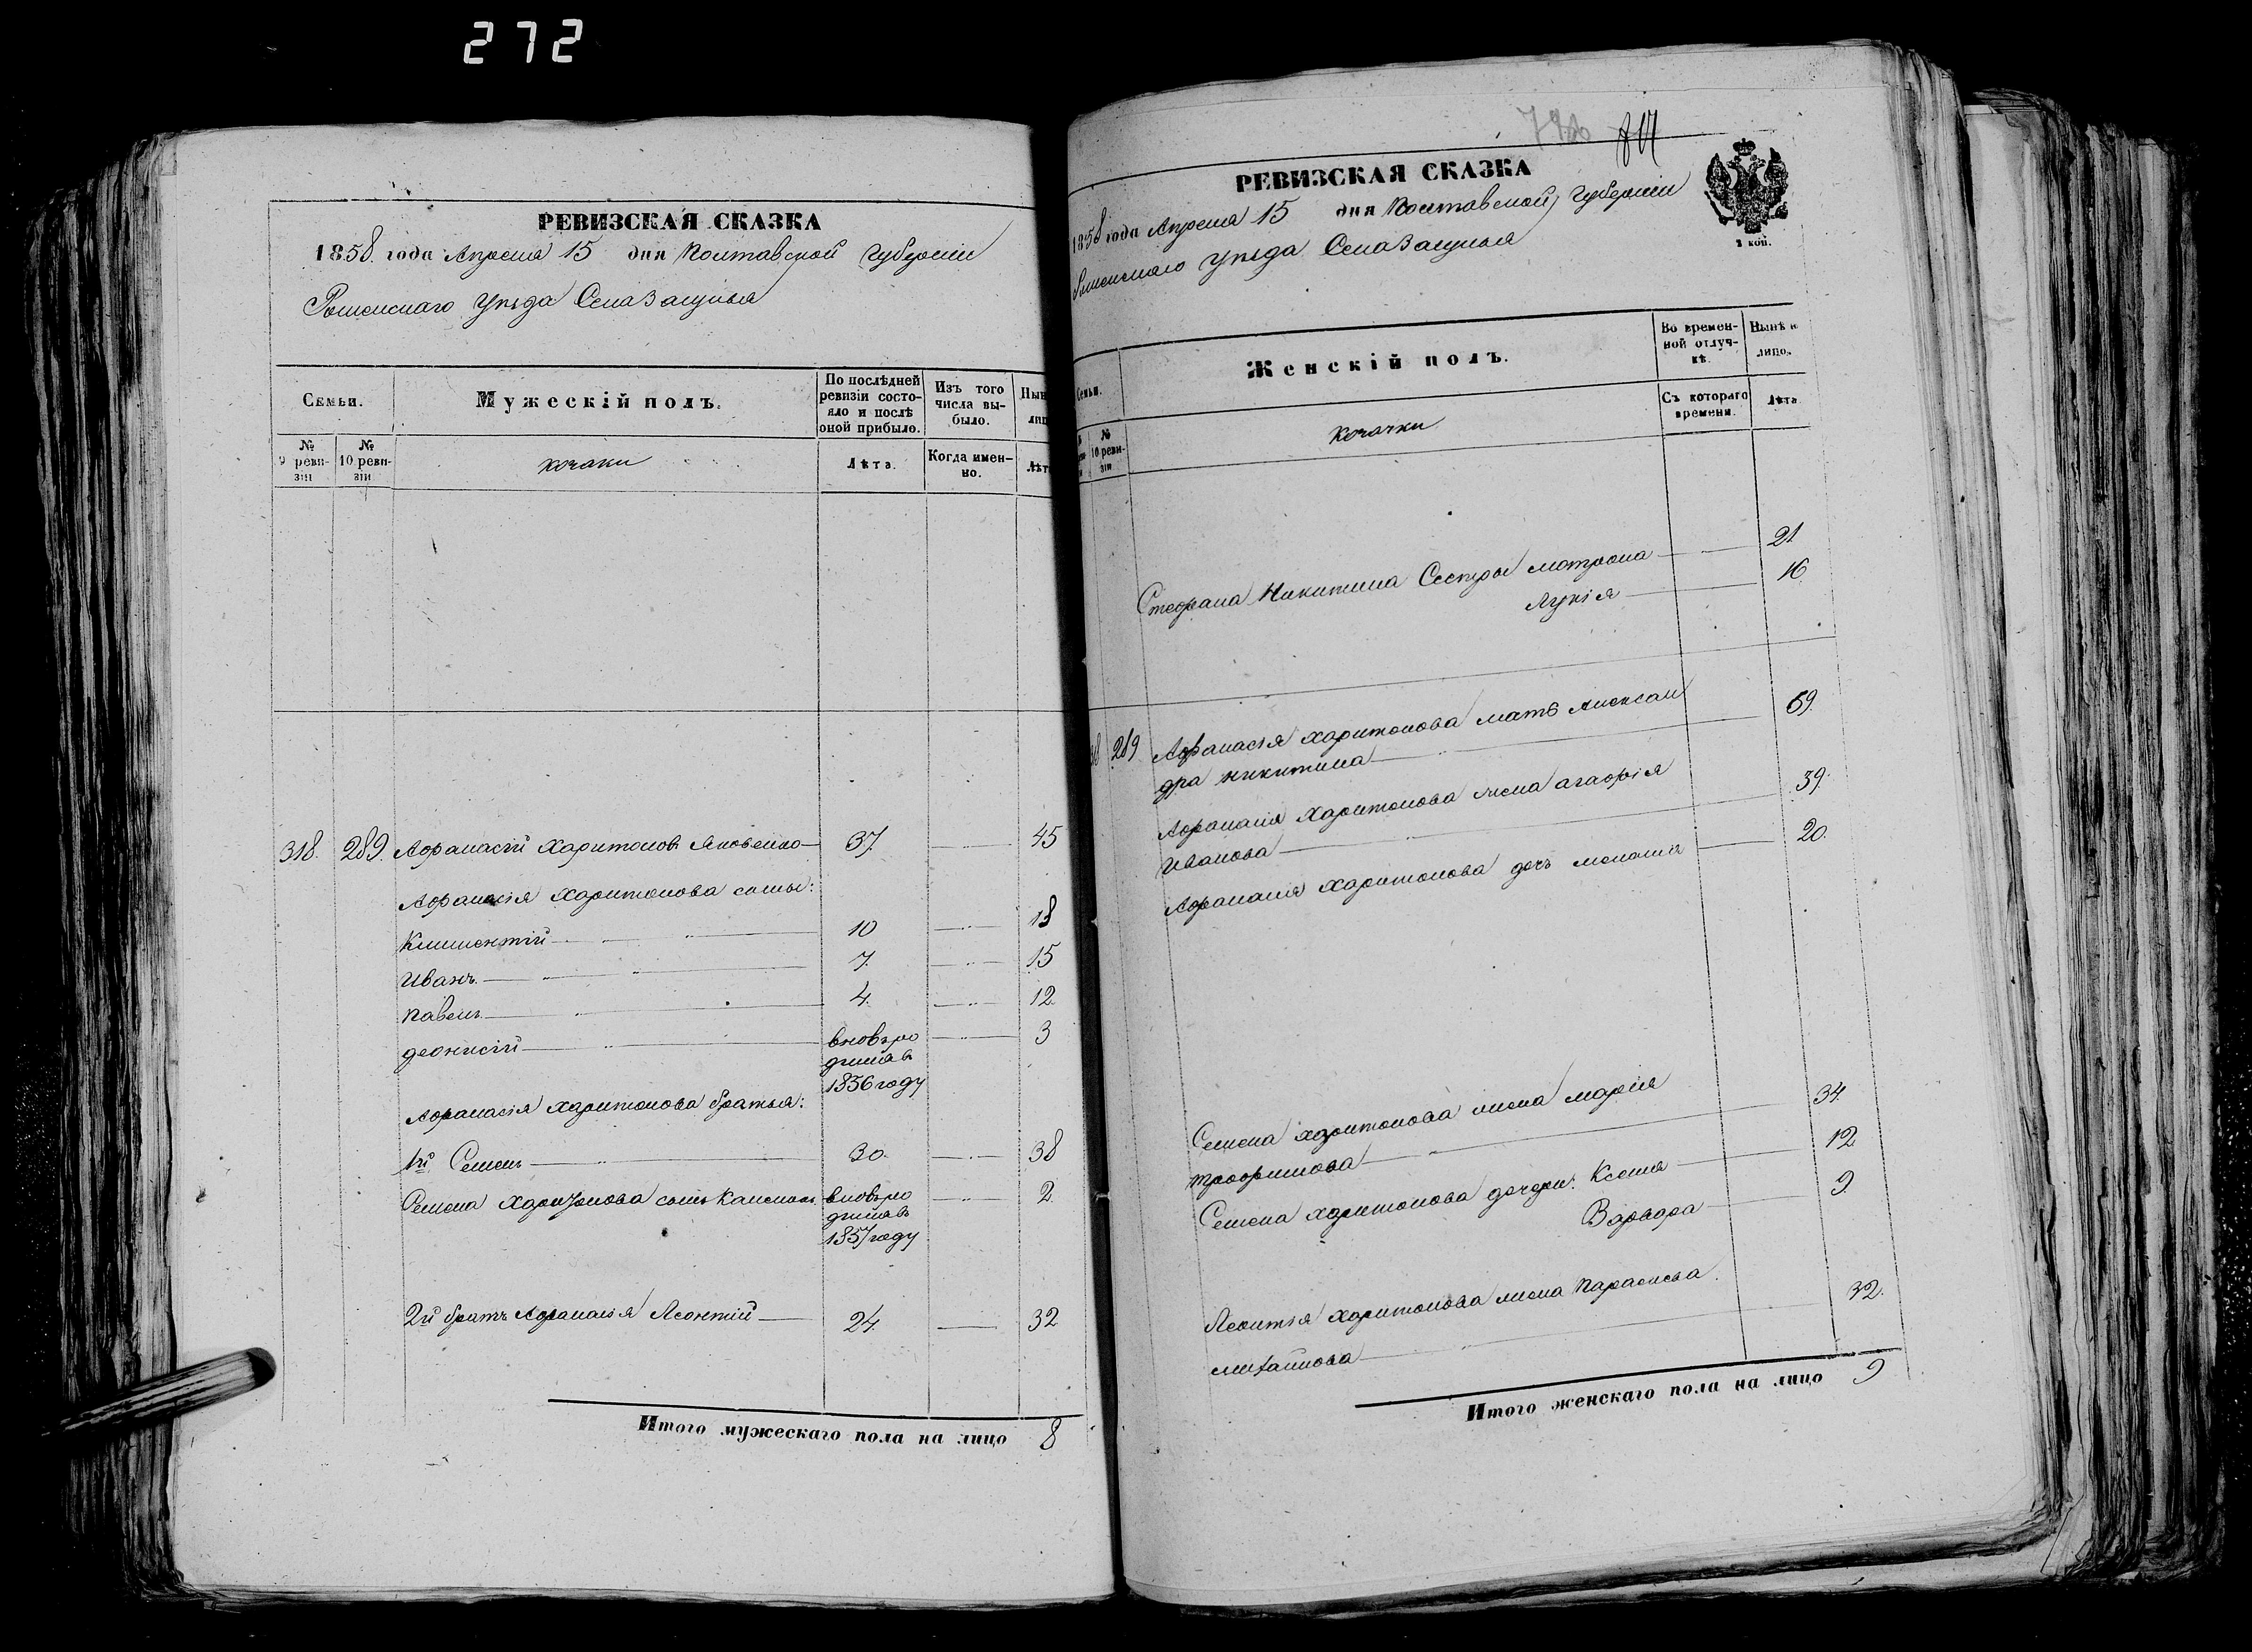 272
РЕВИЗСКАЯ СКАЗКА
1858 года Апреля 15 дня Полтавской Губерніи
Роменскаго Уѣзда Села
Семьи.
Мужескій полъ.
По послѣдней ревизіи состояло и послѣ оной прибыло.
Изъ того числа выбыло.
Нын
лиц
№ 9 ревизіи
№ 10 ревизіи
козаки
Лѣта.
Когда именно.
Лѣт
318. 289. Афанасій Харитоновъ Яковенко 37. 45
Афанасія Харитонова сыны:
Климентій 10 18
Иванъ 7. 15
Павелъ 4. 12
Деонисій вновь ро 3
дился въ
1856 году
Афанасія Харитонова братья:
1й Семенъ 30. 38
Семена Харитонова сынъ вновь ро 2.
дился въ
1857 году
2й братъ Афанасія Леонтій 24. 32
Итого мужескаго пола на лицо 8
РЕВИЗСКАЯ СКАЗКА
1858 года Апреля 15 дня Полтавской Губерніи
Роменскаго Уѣзда Села
2 коп.
Семьи.
Женскій полъ.
Во временной отлучкѣ.
Нынѣ н
лицо.
№ 10 ревизіи
козачки
Съ котораго времени.
Лѣта
Стефана Никитина Сестры Матрона 21
Лукія 16
289 Афанасія Харитонова мать Александра
дра Никитина 69.
Афанасія Харитонова жена Агафія
Иванова 39.
Афанасія Харитонова дочь Меланія 20.
Семена Харитонова жена Марія
Трофимова 34.
Семена Харитонова дочери: Ксенія 12
Варвара 9.
Леонтія Харитонова жена Параскева
Михайлова 32.
Итого женскаго пола на лицо 9